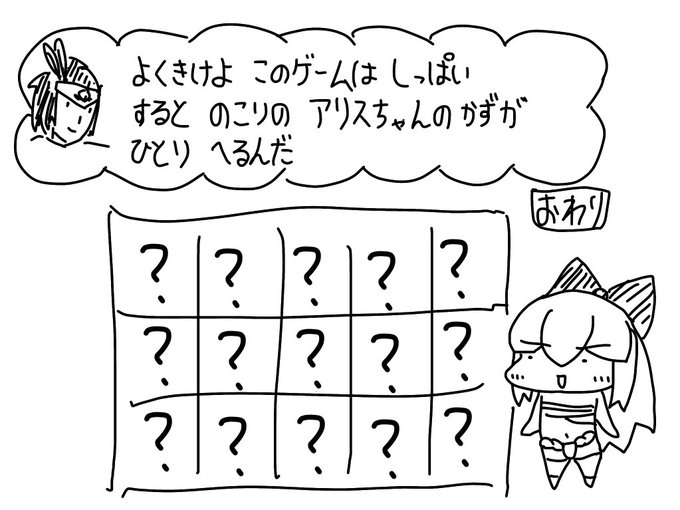 よくきけよ このゲームは しっぱい
すると のこりの アリスちゃんの かずが
ひとり へるんだ
おわり
? ? ? ? ?
? ? ? ? ?
? ? ? ? ?